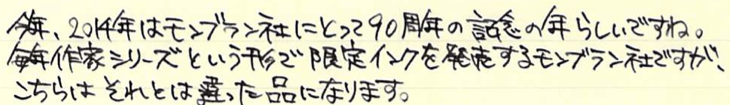 今年、2014年はモンブラン社にとって90周年の記念の年らしいですね。
毎年作家シリーズという形で限定インクを発売するモンブラン社ですが、
こちらはそれとは違った品になります。